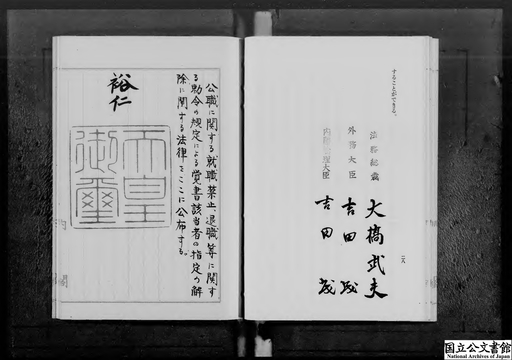 することができる。
法務総裁 大橋武夫
外務大臣 吉田茂
内閣総理大臣 吉田茂
公職に関する就職禁止、退職等に関す
る勅令の規定による覚書該当者の指定の解
除に関する法律をここに公布する。
裕仁
天皇
御璽
国立公文書館
National Archives of Japan